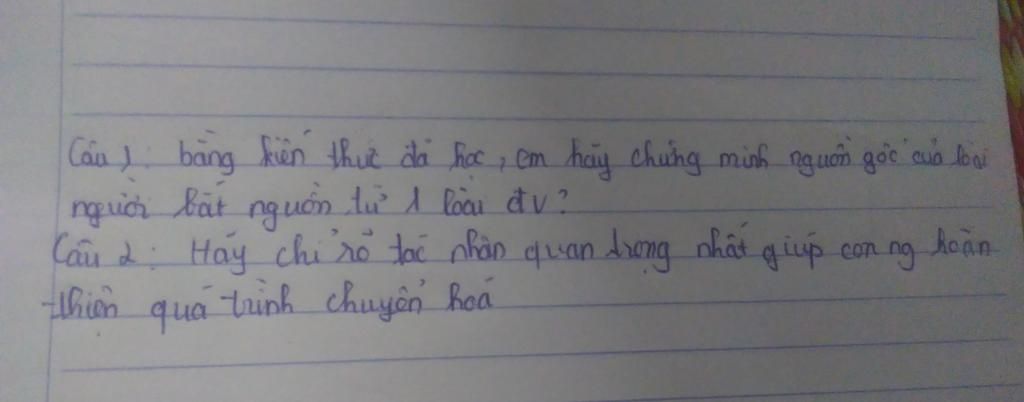 Câu 1: bằng kiến thức đã học, em hãy chứng minh nguồn gốc của loài
người bắt nguồn từ 1 loài đv?
Câu 2: Hãy chỉ rõ tác nhân quan trọng nhất giúp con ng hoàn
thiện quá trình chuyển hoá